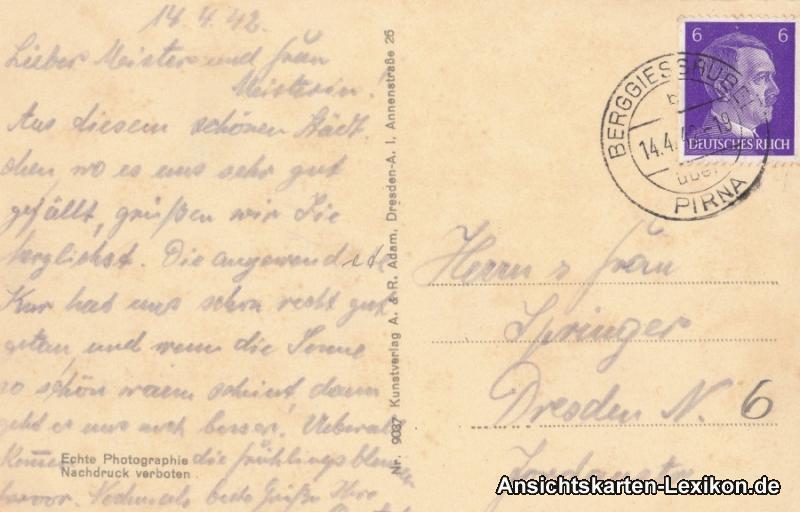 14.4.42.
Lieber Meister und Frau
Meisterin!
Aus diesem schönen Städt
chen wo es uns sehr gut
gefällt, grüßen wir Sie
herzlichst. Die angewendete
Kur hat uns schon recht gut
getan, und wenn die Sonne
so schön warm scheint, dann
geht es uns noch besser. Überall
kommen die Frühlingsblumen
hervor. Nochmals beste Grüße Ihre
Echte Photographie
Nachdruck verboten
Nr. 9037 Kunstverlag A. & R. Adam, Dresden-A. I, Annenstraße 26
6 6
DEUTSCHES REICH
BERGGIESSHÜBEL
b
14.4.42-19
über
PIRNA
Herrn u Frau
Springer
Dresden N. 6
Ansichtskarten-Lexikon.de